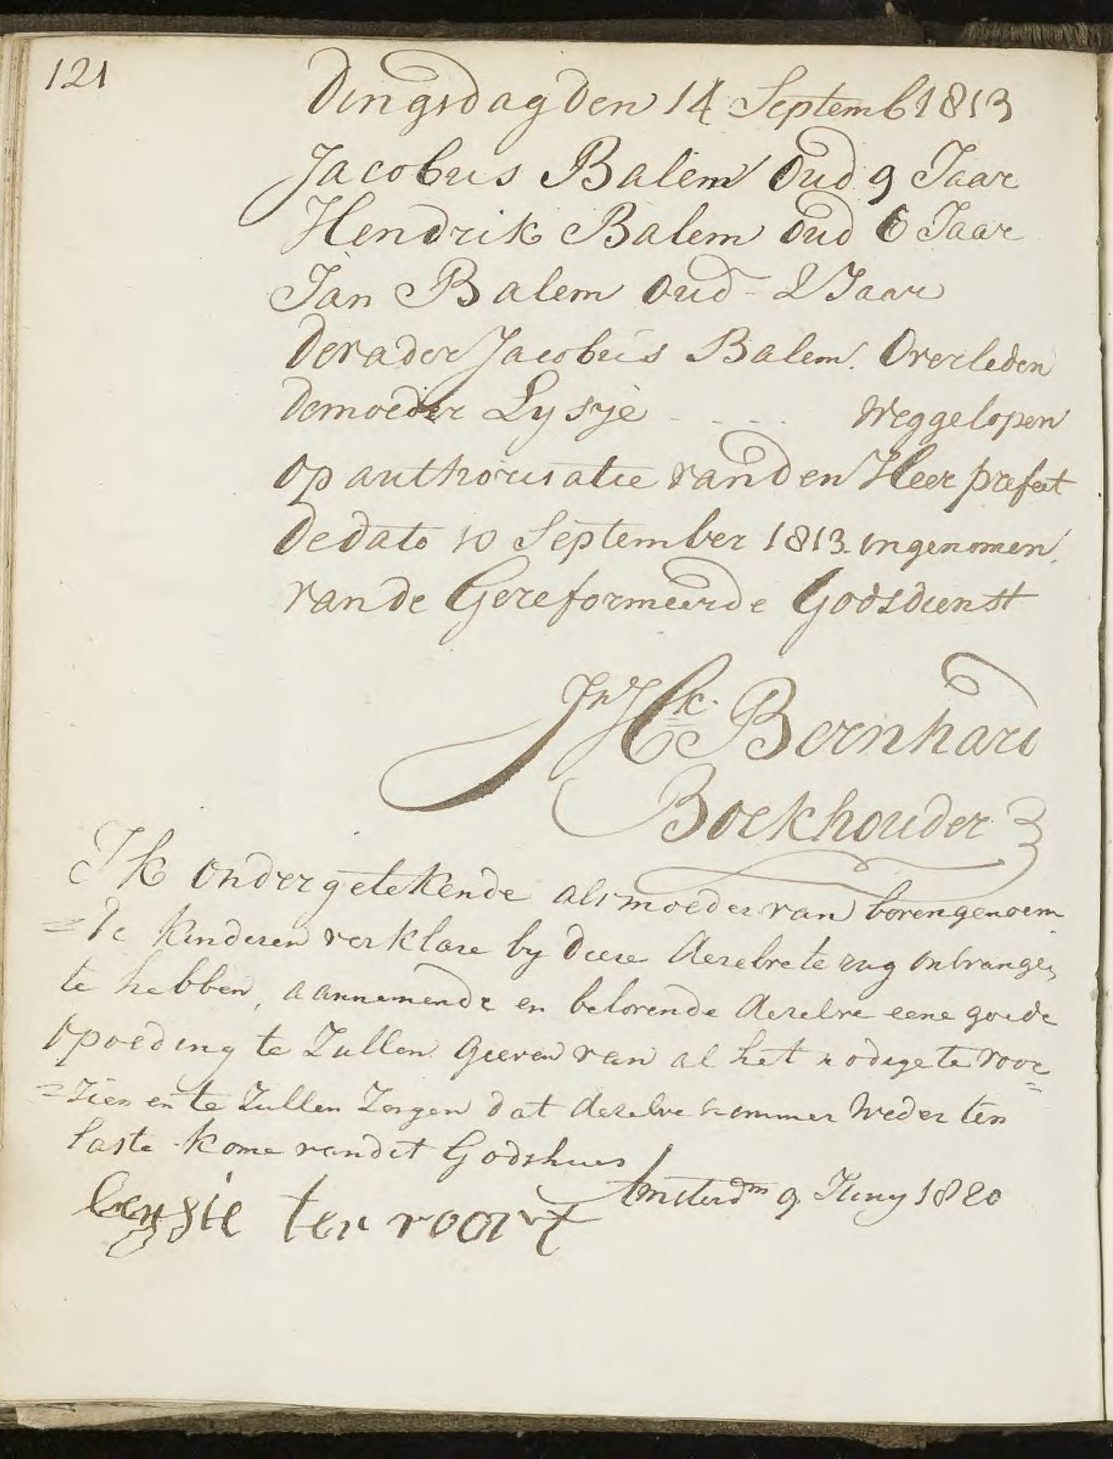 121
Dingsdag den 14 Septemb 1813
Jacobus Balem Oud 9 Jaar
Hendrik Balem oud 6 Jaar
Jan Balem oud - 2 Jaar
de vader Jacobus Balem. Overleden
de moeder Lysje - - - - Weggelopen
op authorisatie van den Heer prefect
de dato 10 September 1813. ingenomen.
van de Gereformeerde Godsdienst
Jn Hk. Bernhard
Boekhouder
Ik ondergetekende als moeder van bovengenoem
=de kinderen verklare by deese dezelve te rug ontvangen
te hebben, aannemende en belovende dezelve eene goede
opvoeding te Zullen geeven van al het nodige te voor
=zien en te Zullen Zorgen dat dezelve nimmer weder ten
laste kome van dit Godshuis
Amsterdm 9 Juny 1820
ter voort